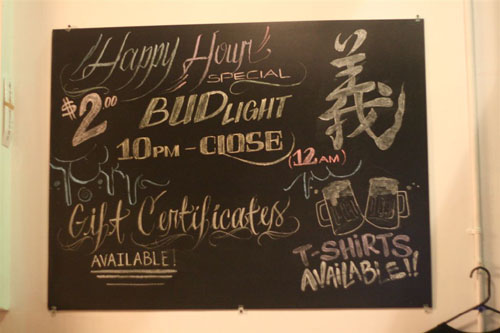 Happy Hour
SPECIAL
$2.00
BUD LIGHT
10PM - CLOSE
(12 AM)
義
Gift Certificates
AVAILABLE!
T-SHIRTS
AVAILABLE!!